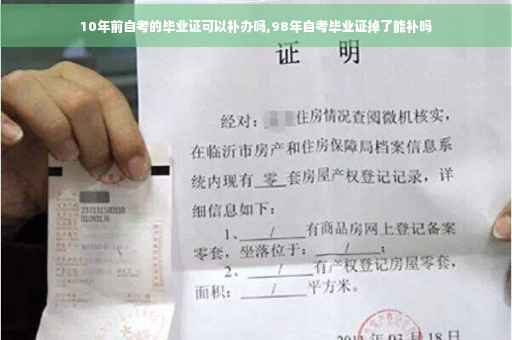 10年前自考的毕业证可以补办吗,98年自考毕业证掉了能补吗
证 明
经对: 住房情况查阅微机核实,
在临沂市房产和住房保障局档案信息系
统内现有 零 套房屋产权登记记录,详
细信息如下:
1、 / 有商品房网上登记备案
零套,坐落位于: / ;
2、 / 有产权登记房屋零套,
面积: / 平方米。
03月18日